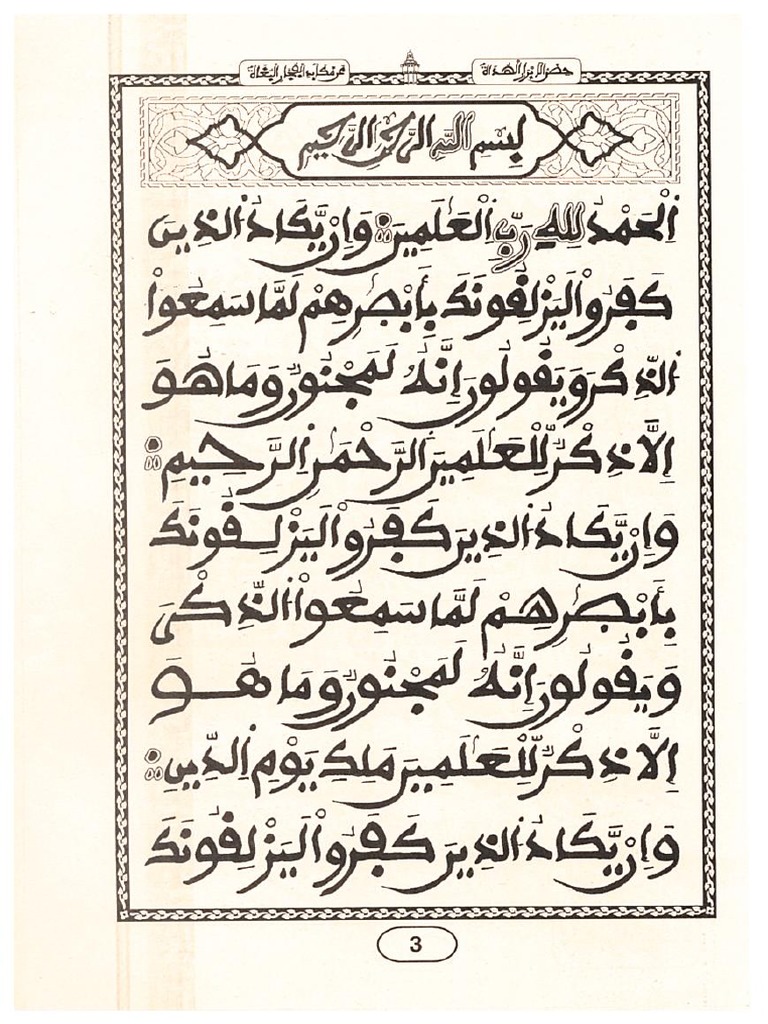 حصن الابرار الهداة
من مكايد الفجار البغاة
بِسْمِ اللَّهِ الرَّحْمَٰنِ الرَّحِيمِ
اَلْحَمْدُ لِلهِ رَبِّ اِلْعَٰلَمِينَ وَإِنْ يَّكَادُ اُلذِينَ
كَفَرُواْ لَيَزْلِقُونَكَ بِأَبْصَٰرِهِمْ لَمَّا سَمِعُواْ
اُلذِّكْرَ وَيَقُولُونَ إِنَّهُۥ لَمَجْنُونٌ وَمَا هُوَ
إِلَّا ذِكْرٌ لِّلْعَٰلَمِينَ اَلرَّحْمَٰنِ اِلرَّحِيمِ
وَإِنْ يَّكَادُ اُلذِينَ كَفَرُواْ لَيَزْلِقُونَكَ
بِأَبْصَٰرِهِمْ لَمَّا سَمِعُواْ اُلذِّكْرَ
وَيَقُولُونَ إِنَّهُۥ لَمَجْنُونٌ وَمَا هُوَ
إِلَّا ذِكْرٌ لِّلْعَٰلَمِينَ مَلِكِ يَوْمِ اِلدِّينِ
وَإِنْ يَّكَادُ اُلذِينَ كَفَرُواْ لَيَزْلِقُونَكَ
3